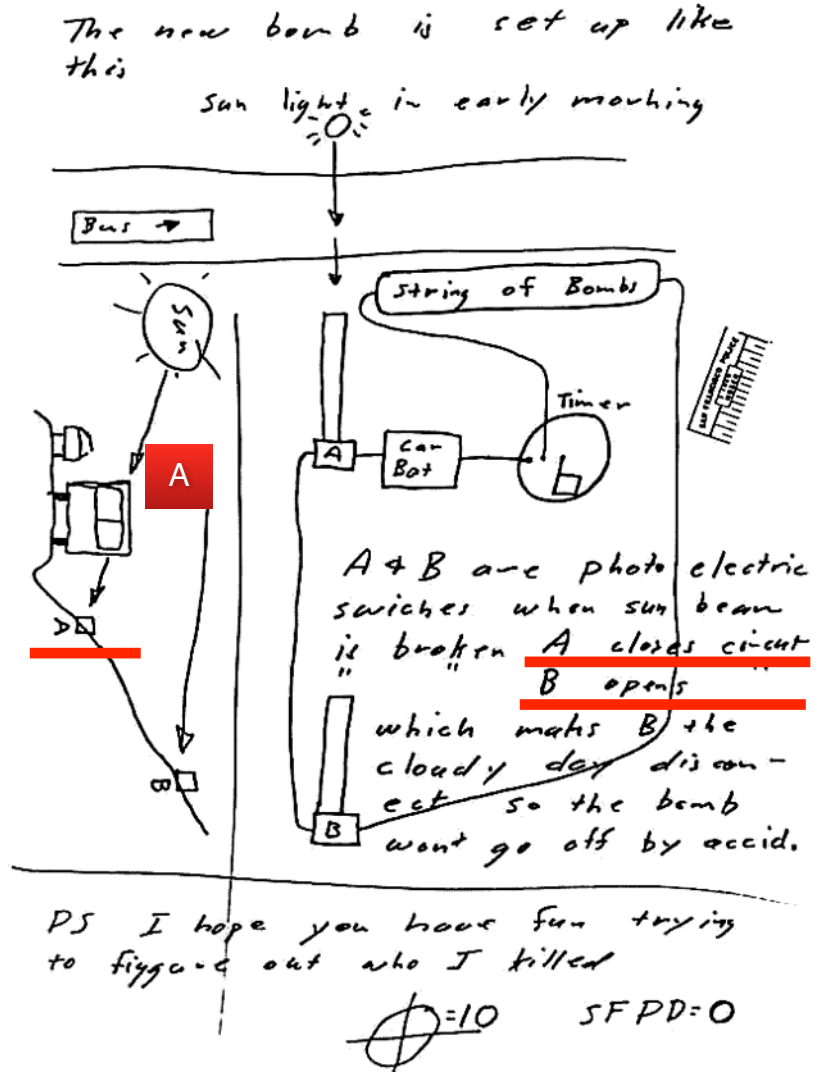 The new bomb is set up like
this
sun light in early morhing
Bus →
Sun
String of Bombs
SAN FRANCISCO POLICE
Timer
A
A
Car
Bat
A & B are photo electric
swiches when sun beam
is broken A closes circut
" " B opens "
A
which maks B the
cloudy day discon-
B
ect so the bomb
B
wont go off by accid.
PS I hope you have fun trying
to figgure out who I killed
=10 SFPD=0